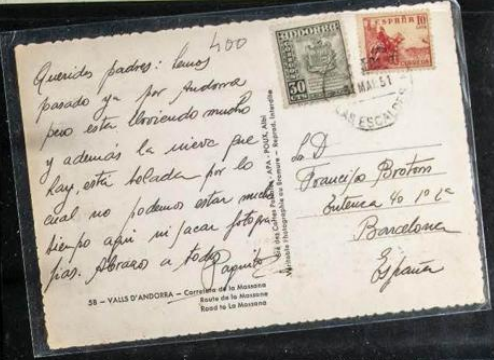 400
Queridos padres: hemos
pasado ya por Andorra
pero esta lloviendo mucho
y además la nieve que
hay, está helada por lo
cual no podemos estar mucho
tiempo aqui ni sacar fotogra
fias. Abrazos a todos
Paquito
58 — VALLS D'ANDORRA — Carretera de la Massana
Route de la Massane
Road to La Massana
Editions des Cartes Postales - APA - POUX, Albi
Véritable Photographie au Bromure - Reprod. Interdite
ANDORRA
50
CTS
ESPAÑA
10
CORREOS
MAY.51
LAS ESCALDAS
Francisco Brotons
40 1º 2ª
Barcelona
España